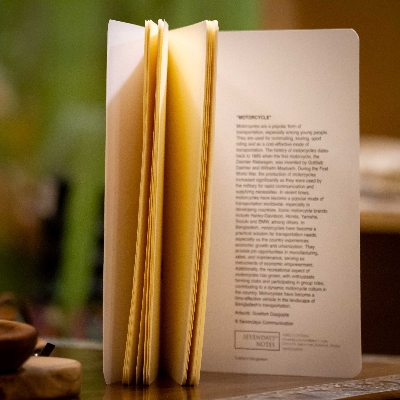 "MOTORCYCLE"
Motorcycles are a popular form of
transportation, especially among young people.
They are used for commuting, touring, sport
riding and as a cost-effective mode of
transportation. The history of motorcycles dates
back to 1885 when the first motorcycle, the
Daimler Reitwagen, was invented by Gottlieb
Daimler and Wilhelm Maybach. During the First
World War, the production of motorcycles
increased significantly as they were used by
the military for rapid communication and
supplying necessities. In recent times,
motorcycles have become a popular mode of
transportation worldwide, especially in
developing countries. Iconic motorcycle brands
include Harley-Davidson, Honda, Yamaha,
Suzuki and BMW, among others. In
Bangladesh, motorcycles have become a
practical solution for transportation needs,
especially as the country experiences
economic growth and urbanization. They
provide job opportunities in manufacturing,
sales, and maintenance, serving as
instruments of economic empowerment.
Additionally, the recreational aspect of
motorcycles has grown, with enthusiasts
forming clubs and participating in group rides,
contributing to a dynamic motorcycle culture in
the country. Motorcycles have become a
time-effective vehicle in the landscape of
Bangladesh's transportation.
Artwork:
© Sevendays Communication
SEVENDAYS
NOTES